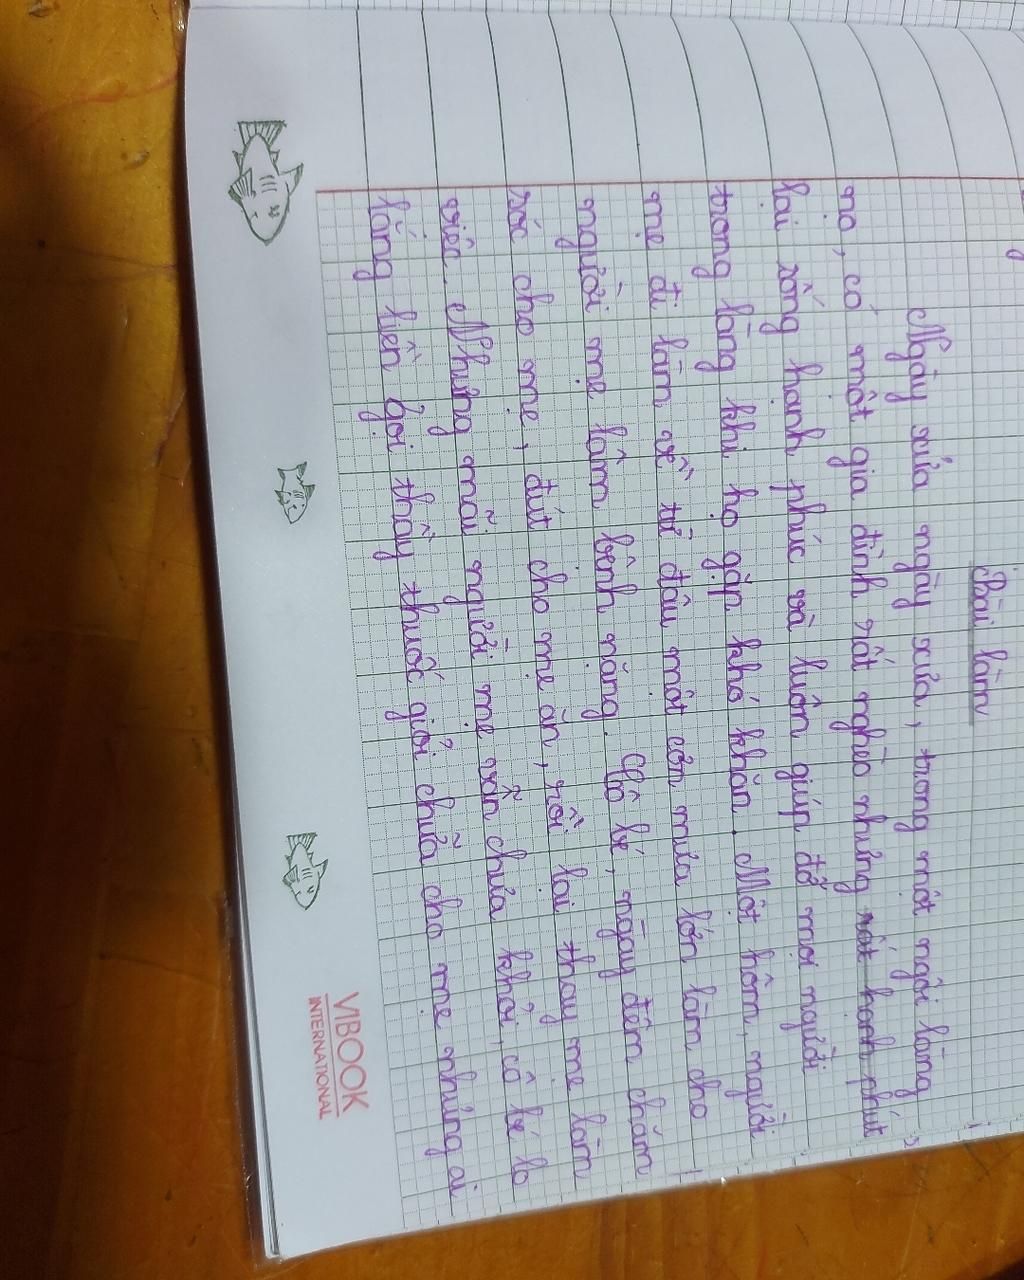 Bài làm
Ngày xửa ngày xưa, trong một ngôi làng
nọ, có một gia đình rất nghèo nhưng rất hạnh phút
lại sống hạnh phúc và luôn giúp đỡ mọi người
trong làng khi họ gặp khó khăn. Một hôm, người
mẹ đi làm về từ đâu một cơn mưa lớn làm cho
người mẹ lâm bệnh nặng. Cô bé, ngày đêm chăm
sóc cho mẹ, đút cho mẹ ăn, rồi lại thay mẹ làm
việc. Nhưng mãi người mẹ vẫn chưa khỏi, cô bé lo
lắng liền gọi thầy thuốc giỏi chữa cho mẹ nhưng ai
VIBOOK
INTERNATIONAL